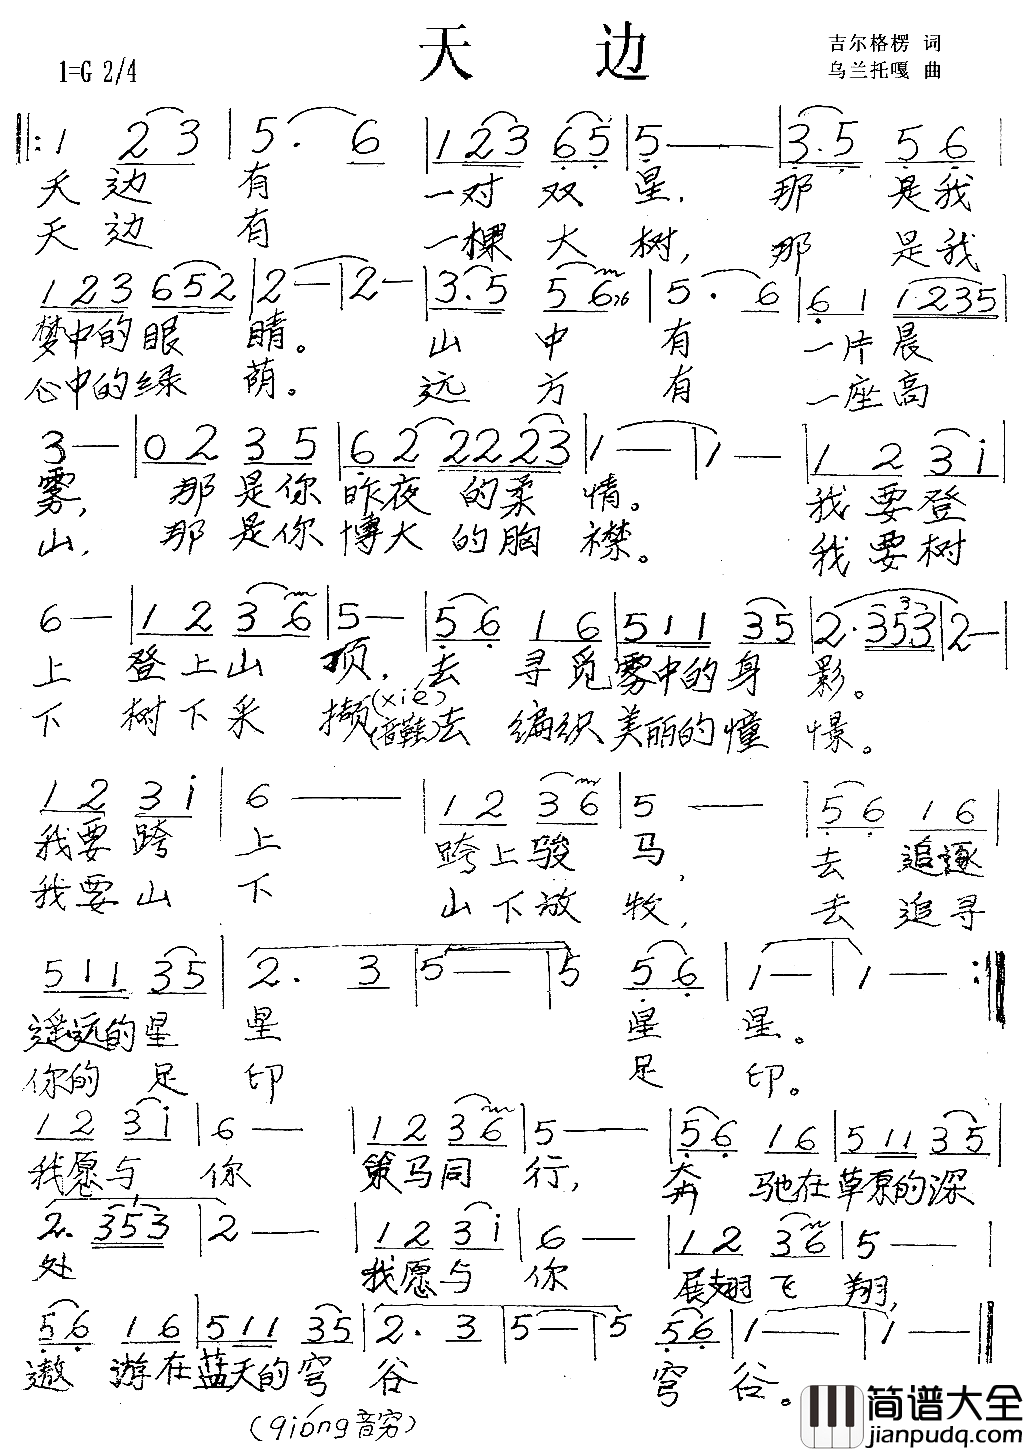 天 边
吉尔格楞 词
1=G 2/4
乌兰托嘎 曲
1 2 3 | 5 . 6 | 1 2 3 6 5 | 5 — — | 3 . 5 5 6 |
天 边 有 一对 双 星, 那 是我
天 边 有 一棵 大 树, 那 是我
1 2 3 6 5 2 | 2 — | 2 — | 3 . 5 5 6 | 5 . 6 | 6 1 1 2 3 5 |
梦中的眼 睛。 山 中 有 一片晨
心中的绿 荫。 远 方 有 一座高
3 — | 0 2 3 5 | 6 2 2 2 2 3 | 1 — | 1 — | 1 2 3 i |
雾, 那 是你 昨夜 的柔 情。 我要登
山, 那 是你 博大 的胸 襟。 我要树
6 — | 1 2 3 6 | 5 — | 5 6 1 6 | 5 1 1 3 5 | 2 . 3 5 3 | 2 — |
上 登上山 顶, 去 寻觅雾中的身 影。
下 树下采 撷(xié)(音鞋)去 编织美丽的憧 憬。
1 2 3 i | 6 — — | 1 2 3 6 | 5 — — | 5 6 1 6 |
我要跨 上 跨上骏 马, 去 追逐
我要山 下 山下放 牧, 去 追寻
5 1 1 3 5 | 2 . 3 | 5 — 5 | 5 6 | 1 — | 1 — :||
遥远的星 星 星 星。
你的 足 印 足 印。
1 2 3 i | 6 — | 1 2 3 6 | 5 — — | 5 6 1 6 | 5 1 1 3 5 |
我愿与 你 策马同 行, 奔 驰在草原的深
2 . 3 5 3 | 2 — | 1 2 3 i | 6 — | 1 2 3 6 | 5 — |
处 我愿与 你 展翅飞 翔,
5 6 1 6 | 5 1 1 3 5 | 2 . 3 | 5 — 5 | 5 6 | 1 — | 1 — |
遨 游在蓝天的穹 谷 穹 谷。
(qióng音穷)
简谱大全
jianpudq.com